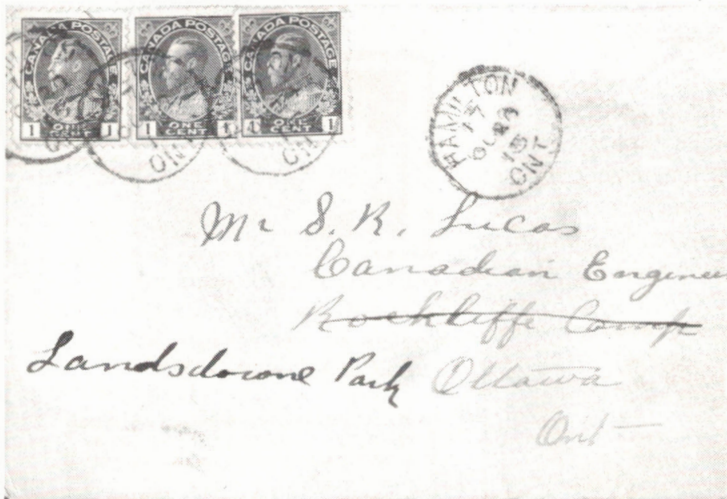 CANADA POSTAGE CANADA POSTAGE CANADA POSTAGE
1 ONE CENT 1 1 ONE CENT 1 1 ONE CENT 1
HAMILTON
17
OC 29
15
ONT
Mr S. R. Lucas
Canadian Enginee
Rockliffe Camp
Landsdowne Park Ottawa
Ont